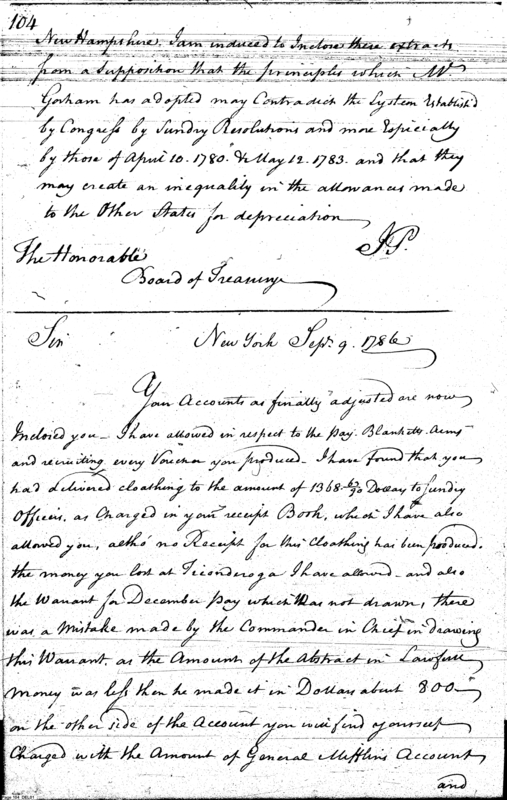 104
New Hampshire. I am induced to Inclose these extracts
from a Supposition that the principles which Mr.
Gorham has adopted may Contradict the System Establish'd
by Congress by Sundry Resolutions and more Especially
by those of April 10. 1780. & May 12. 1783. and that they
may create an inequality in the allowances made
to the Other States for depreciation
J.P.
The Honorable
Board of Treasury
Sir New York Sept. 9. 1786
Your Accounts as finally adjusted are now
Inclosed you_ I have allowed in respect to the Pay. Blanketts. Arms
and recruiting every Voucher you produced_ I have found that you
had delivered cloathing to the amount of 1368 Dollars to Sundry
Officers, as Charged in your receipt Book, which I have also
allowed you, altho' no Receipt for this Cloathing has been produced.
the money you lost at Ticonderoga I have allowed_ and also
the Warrant for December Pay which was not drawn, there
was a mistake made by the Commander in Chief in drawing
this Warrant. as the Amount of the Abstract in Lawfull
Money was less then he made it in Dollars about 800_
on the other side of the Account you will find yourself
Charged with the Amount of General Mifflins Account
and